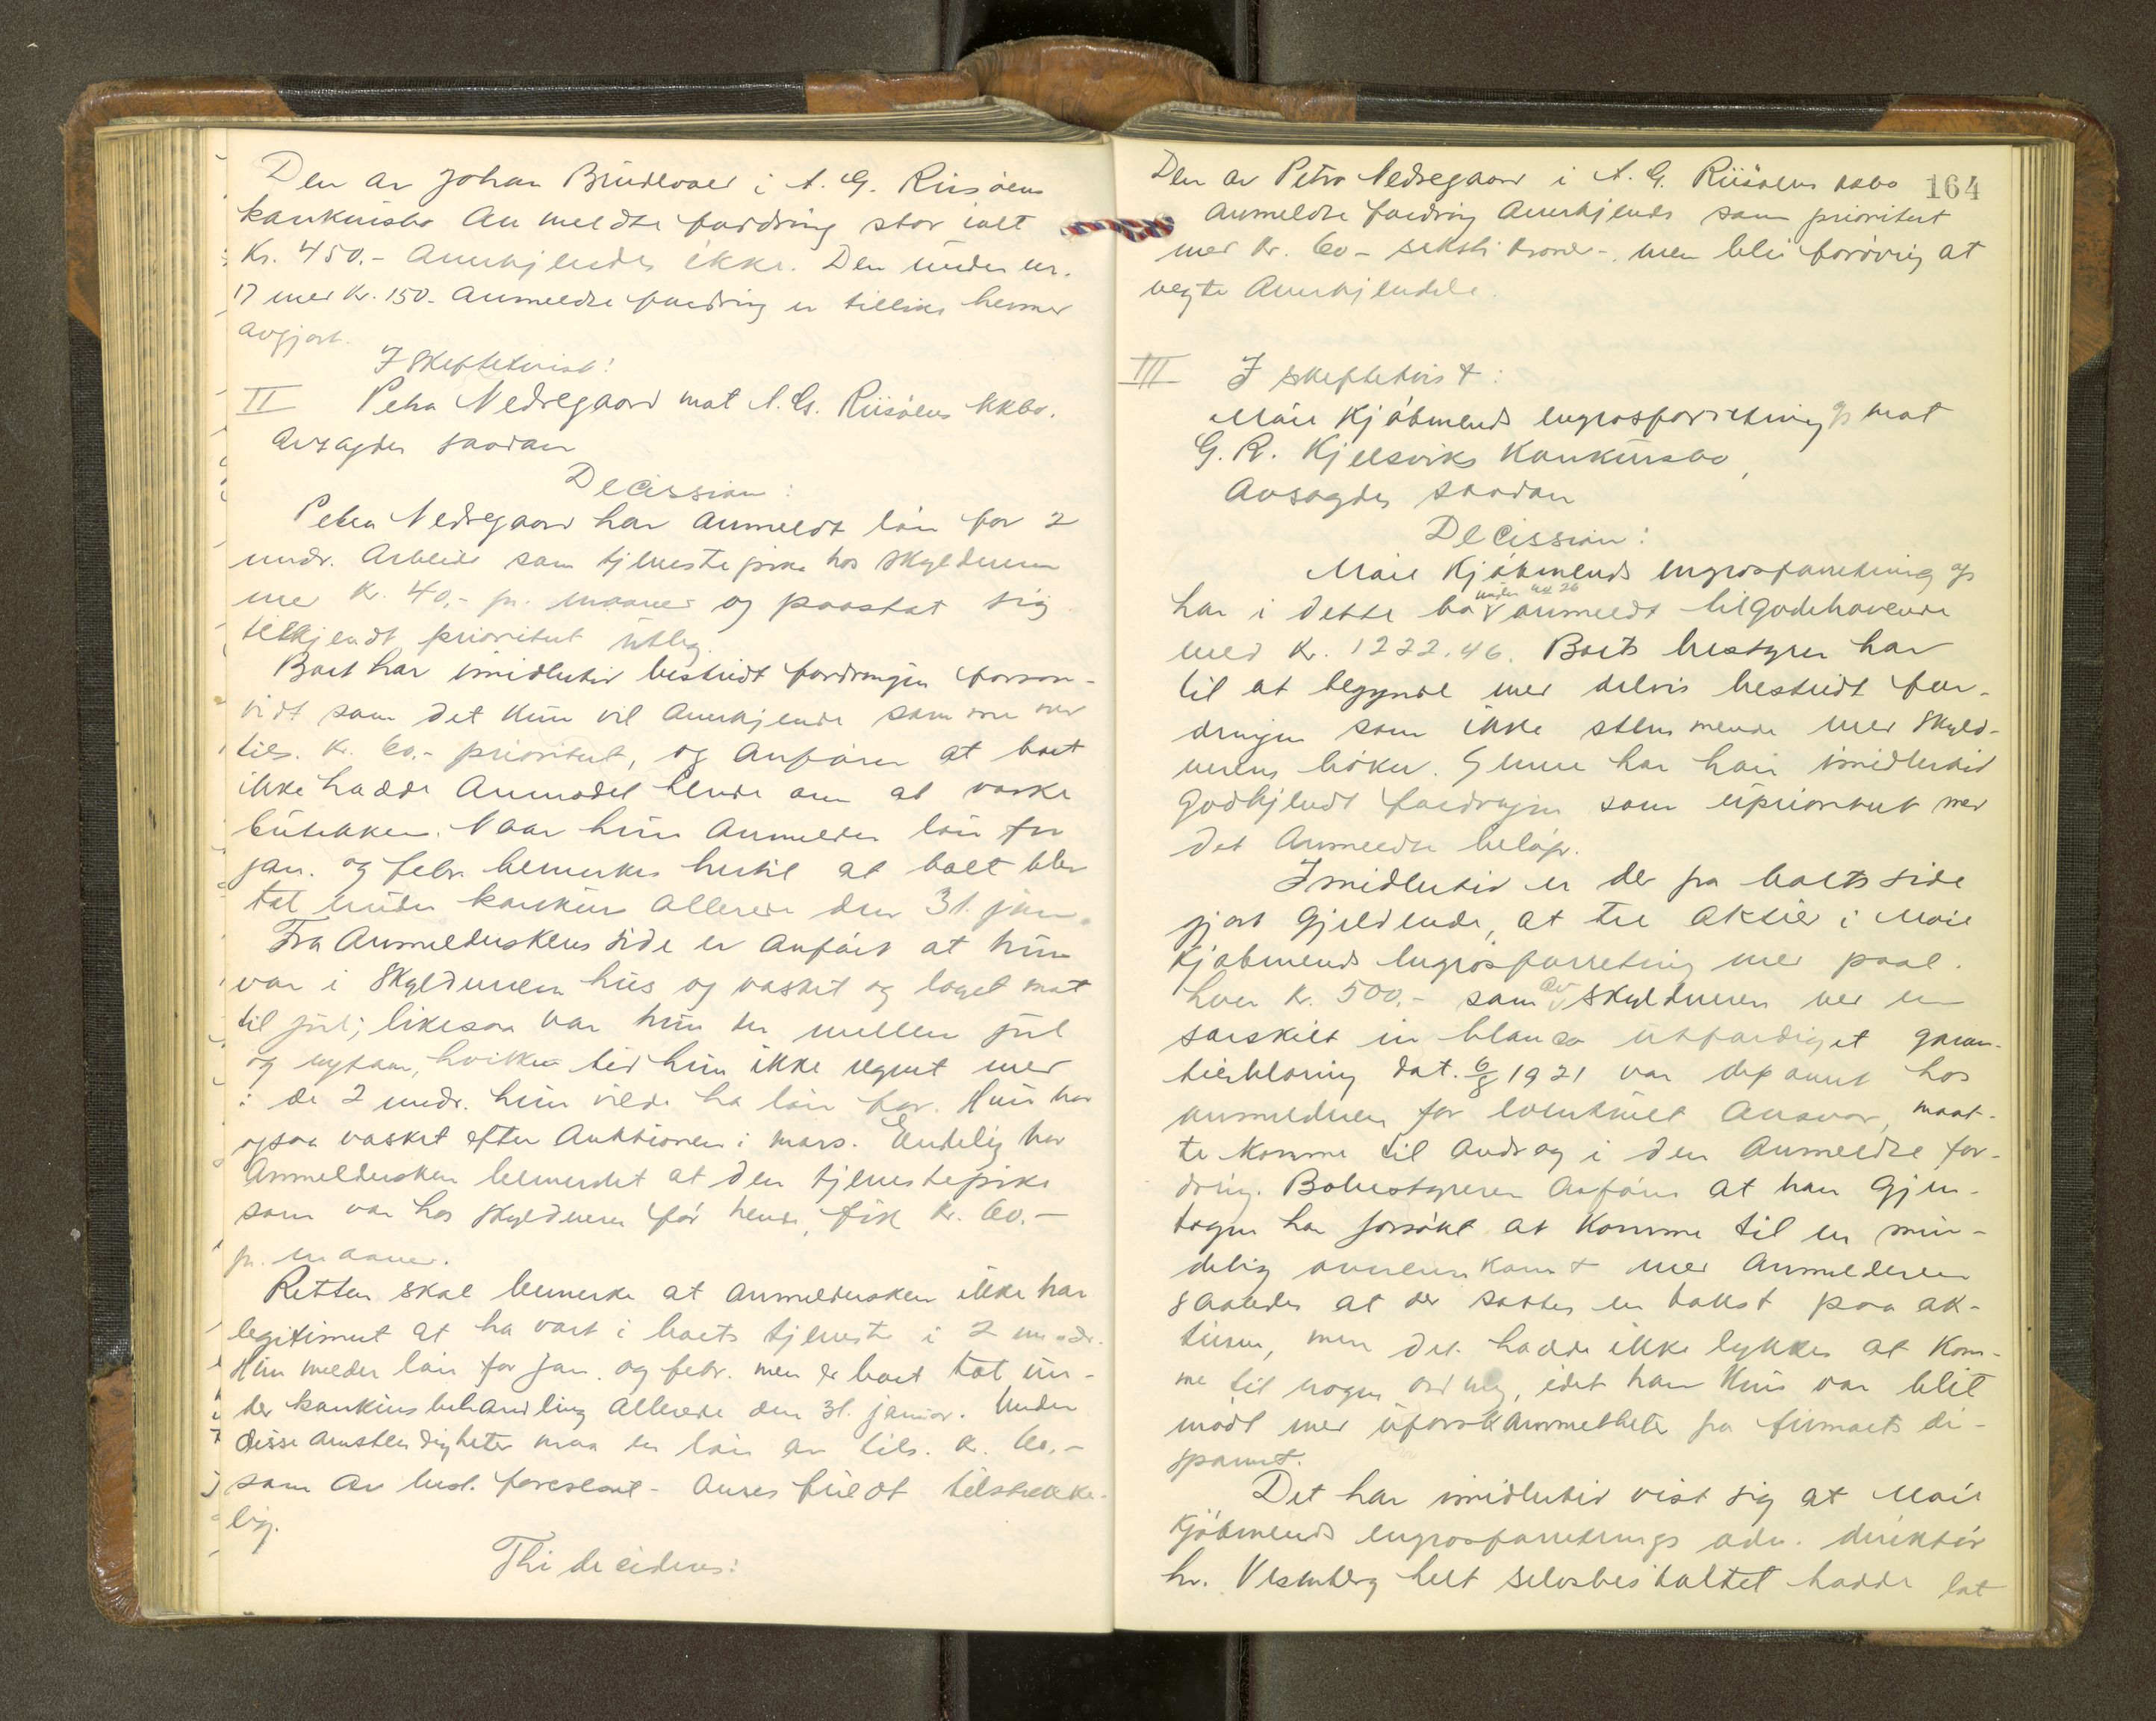 Den av Johan Brudevoll i A. G. Riisøens
konkursbo Anmeldte fordring stor ialt
Kr. 450.- Anerkjendes ikke. Den under nr.
17 med Kr. 150.- Anmeldte fordring er tillike hermed
avgjort.
I Skiftetvist:
II Petra Nedregaard mot A. G. Riisøens kkbo.
Avsagdes saadan
Decission:
Petra Nedregaard har Anmeldt løn for 2
mndr. Arbeide som tjenestepike hos Skyldneren
med Kr. 40,- pr. maaned og paastat sig
tilkjendt prioritert utlæg.
Boet har imidlertid bestridt fordringen forsaa-
vidt som det kun vil Anerkjende samme med
tils. Kr. 60.- prioritert, og Anfører at boet
ikke hadde Anmodet hende om at vaske
butikken. Naar hun Anmelder løn for
jan. og febr. bemerkes hertil at boet blev
tat under konkurs Allerede den 31. jan.
Fra Anmelderskens side er Anført at hun
var i Skyldneren hus og vasket og laget mat
til jul; likesaa var hun der mellem jul
og nytaar, hvilken tid hun ikke regnet med
i de 2 mndr. hun vilde ha løn for. Hun har
ogsaa vasket efter Auktionen i mars. Endelig har
Anmeldersken bemerket at den tjenestepike
som var hos Skyldneren før hende, fik Kr. 60.-
pr. maaned.
Retten skal bemerke at Anmeldersken ikke har
legitimert at ha vært i boets tjeneste i 2 mndr.
Hun melder løn for jan. og febr. men er boet tat un-
der konkursbehandling Allerede den 31. januar. Under
disse Omstendigheter maa en løn av tils. Kr. 60.-
som av best. foreslaat - Anses fuldt tilstrække-
lig.
Thi decideres:
164
Den av Petra Nedregaard i A. G. Riisøens kkbo
Anmeldte fordring Anerkjendes som prioritert
med Kr. 60 - seksti kroner -, men blir forøvrig at
negte Anerkjendelse.
III I skiftetvist:
Møre Kjøbmends engrosforretning A/S mot
G. R. Kjelsviks Konkursbo,
Avsagdes saadan
Decission:
Møre Kjøbmends engrosforretning A/S
har i dette bo under nr 26 anmeldt tilgodehavende
med Kr. 1222.46. Boets bestyrer har
til at begynde med delvis bestridt for-
dringen som ikke stemmende med Skyld-
nerens bøker. Senere har han imidlertid
godkjendt fordringen som uprioritert med
det Anmeldte beløp.
Imidlertid er der fra boets side
gjort gjeldende, at tre Aktier i Møre
Kjøbmends Engrosforretning med paal.
hver Kr. 500.- som av Skyldneren ved en
særskilt in blanco utfærdiget garan-
tierklæring dat. 6/8 1921 var deponert hos
anmelderen for eventuelt Ansvar, maat-
te komme til Avdrag i den Anmeldte for-
dring. Bobestyreren Anfører at han Gjen-
tagen har forsøkt at Komme til en min-
delig overenskomst med Anmelderen
saaledes at der sattes en takst paa Ak-
tierne, men det hadde ikke lykkes at Kom-
me til nogen ordning, idet han Kun var blit
møtt med uforskammetheter fra firmaets di-
sponent.
Det har imidlertid vist sig at Møre
Kjøbmends engrosforretnings adm. direktør
hr. Vesenberg helt selvbestaltet hadde lat